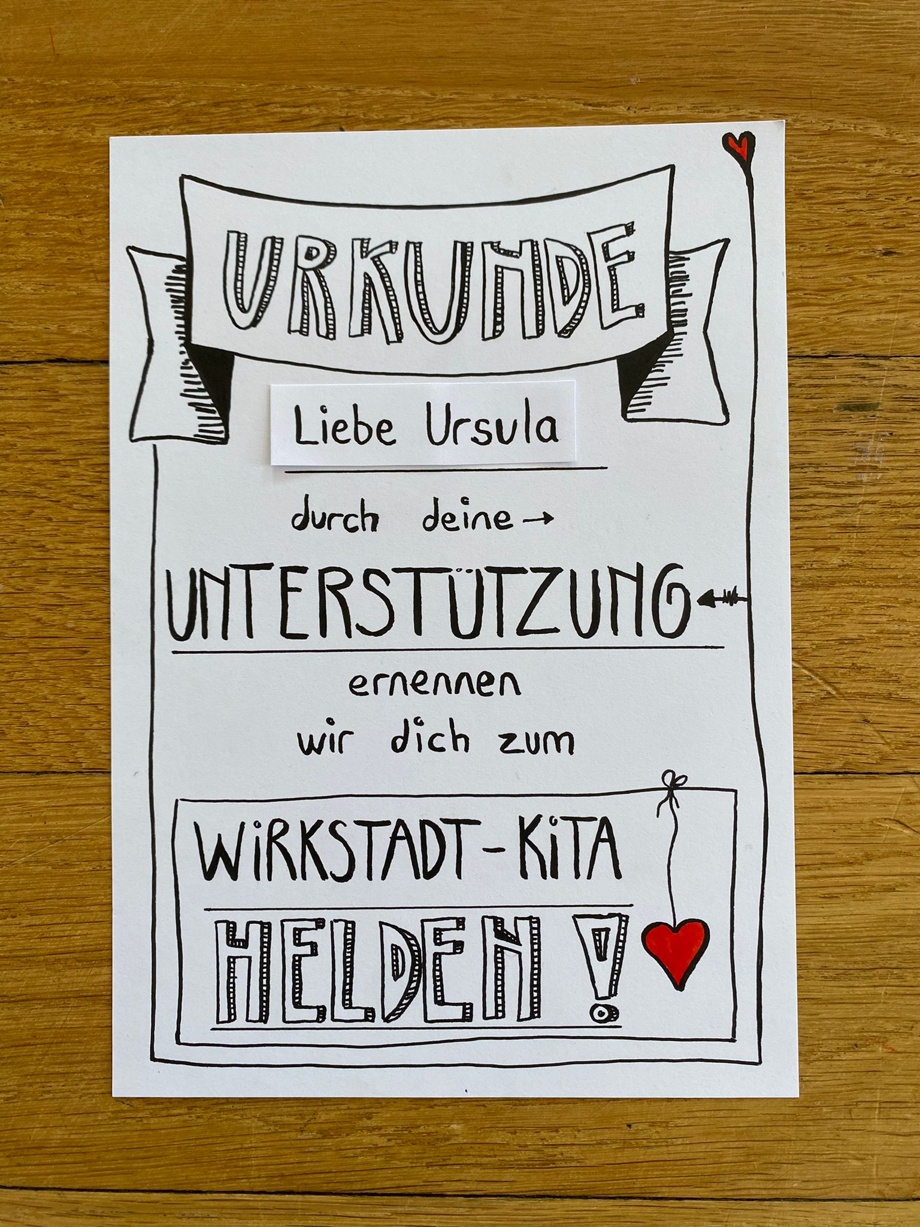 URKUNDE
Liebe Ursula
durch deine →
UNTERSTÜTZUNG
ernennen
wir dich zum
WiRKSTADT-KiTA
HELDEN!